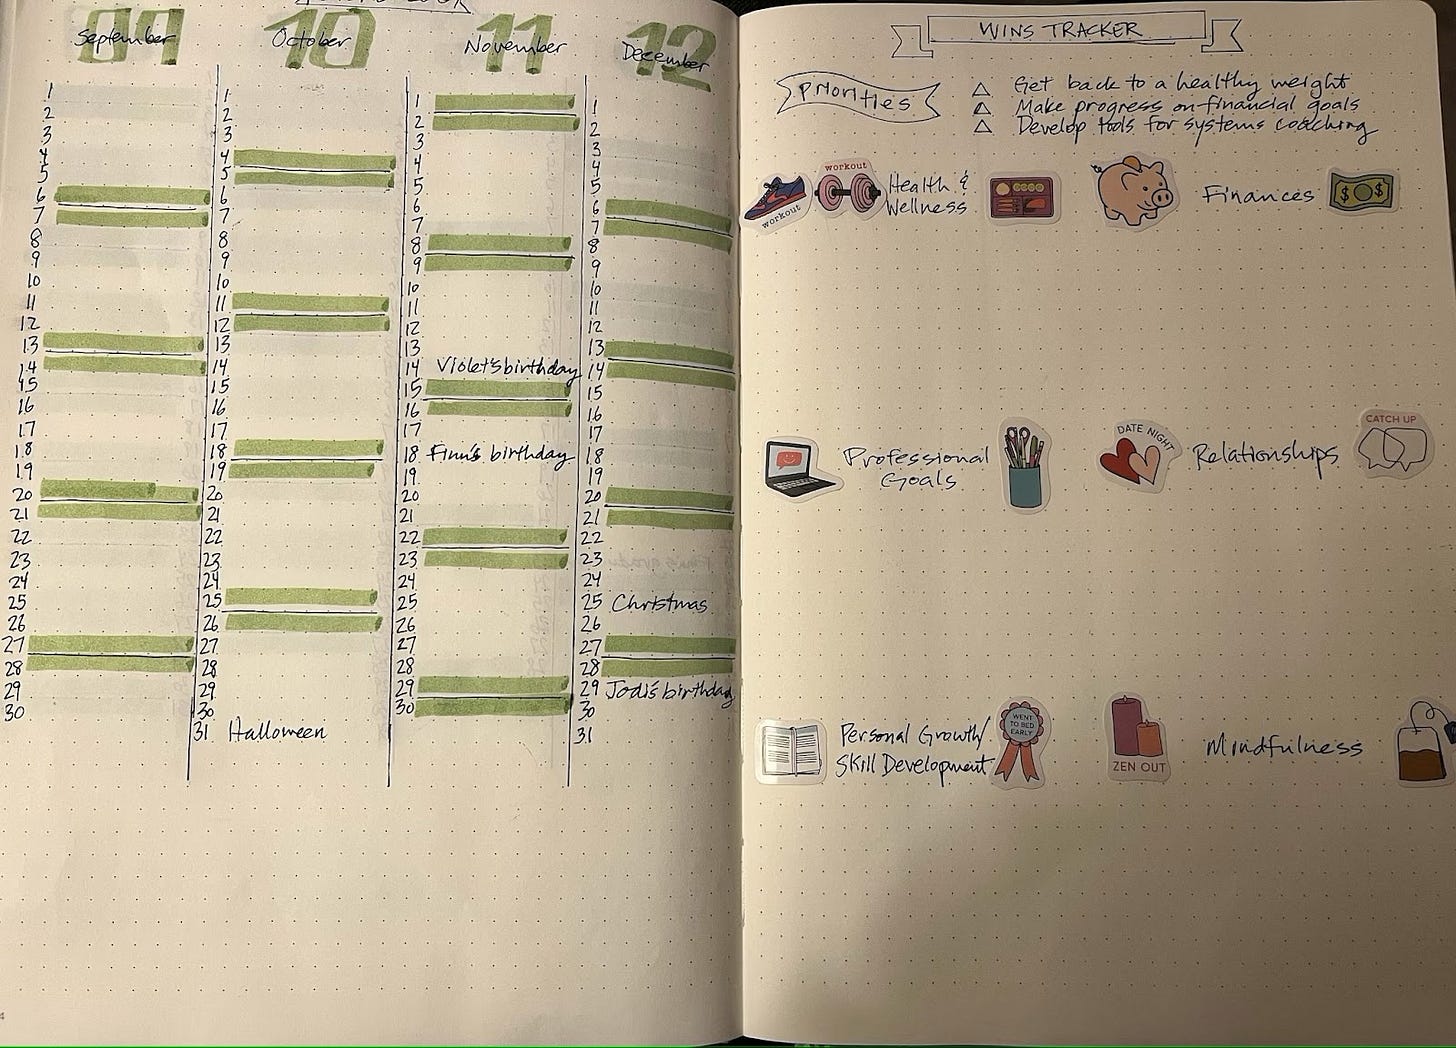 09
September
1
2
3
4
5
6
7
8
9
10
11
12
13
14
15
16
17
18
19
20
21
22
23
24
25
26
27
28
29
30
10
October
1
2
3
4
5
6
7
8
9
10
11
12
13
14
15
16
17
18
19
20
21
22
23
24
25
26
27
28
29
30
31 Halloween
11
November
1
2
3
4
5
6
7
8
9
10
11
12
13
14 Violet's birthday
15
16
17
18 Finn's birthday
19
20
21
22
23
24
25
26
27
28
29
30
12
December
1
2
3
4
5
6
7
8
9
10
11
12
13
14
15
16
17
18
19
20
21
22
23
24
25 Christmas
26
27
28
29 Jodi's birthday
30
31
4
WINS TRACKER
Priorities
△ Get back to a healthy weight
△ Make progress on financial goals
△ Develop tools for systems coaching
workout
workout
Health &
Wellness
Finances
$ $
Professional
Goals
DATE NIGHT
Relationships
CATCH UP
Personal Growth/
Skill Development
WENT
TO BED
EARLY
ZEN OUT
Mindfulness